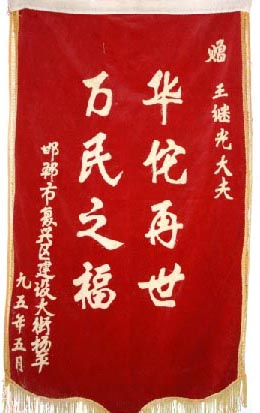 赠 王继光大夫
华佗再世
万民之福
邯郸市复兴区建设大街杨平
九五年五月